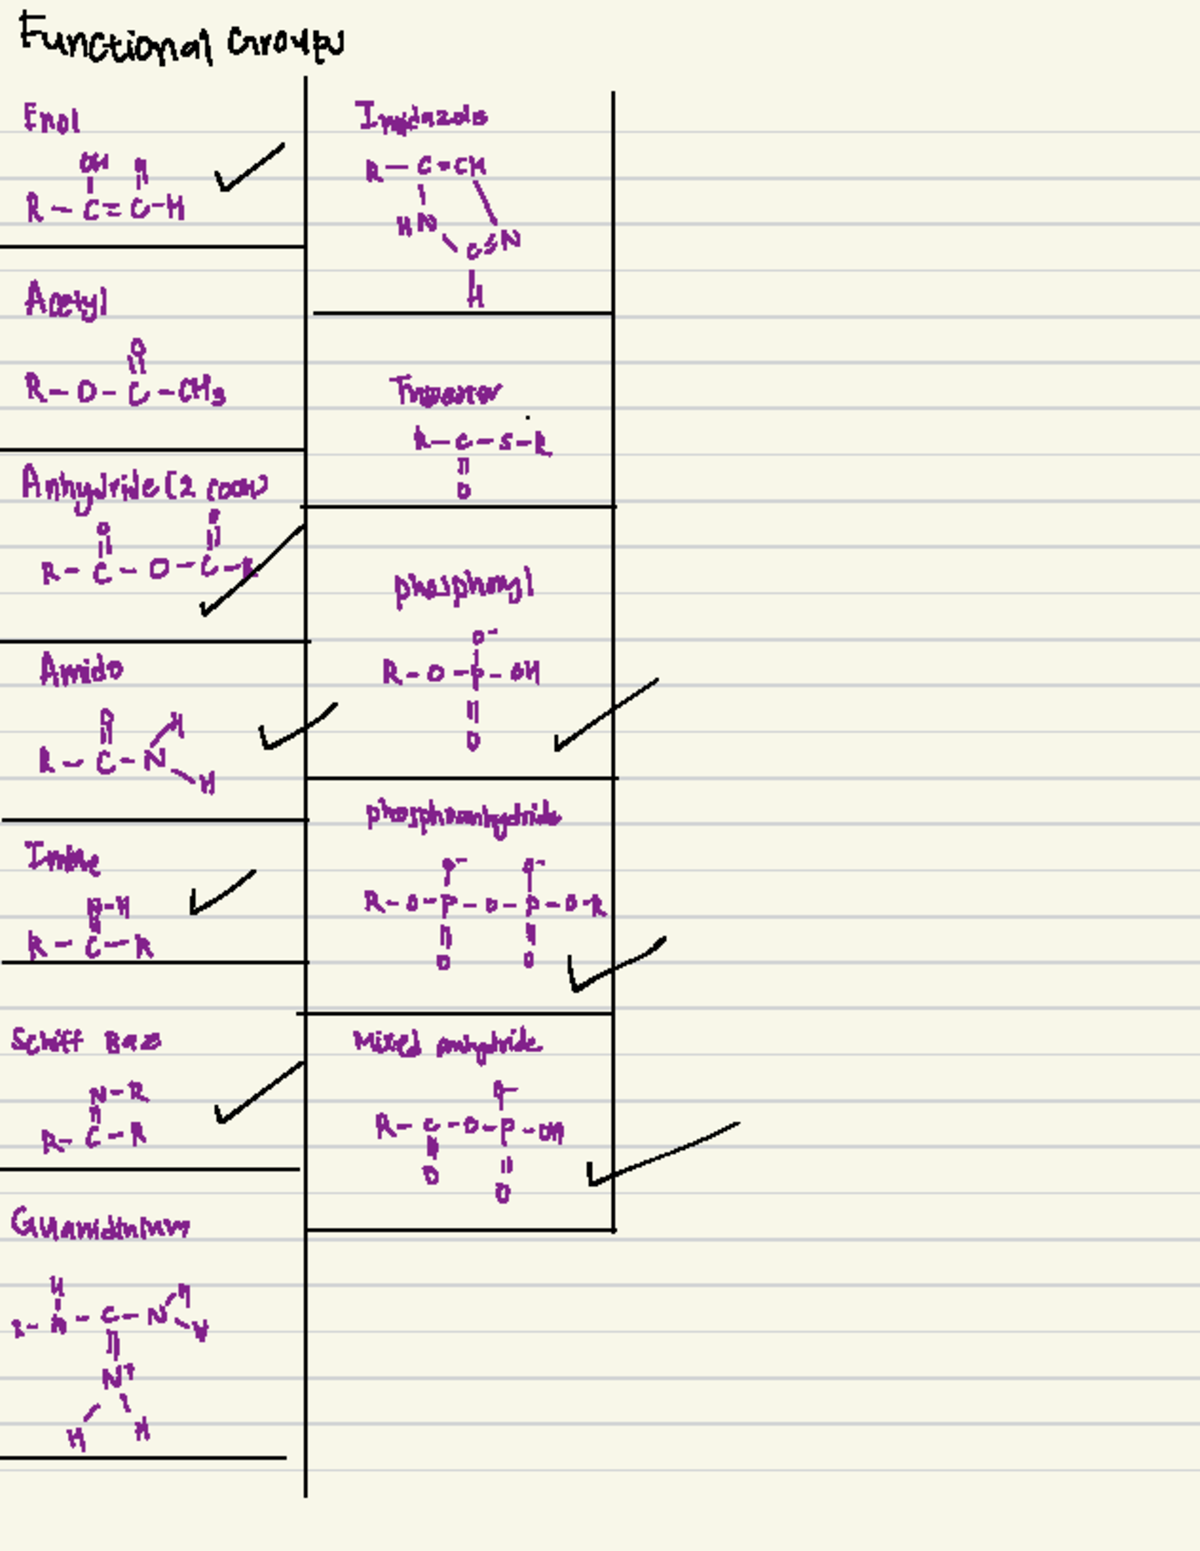 Functional Groups
Enol
OH H
R - C = C - H
Acetyl
O
R - O - C - CH3
Anhydride (2 COOH)
O O
R - C - O - C - R
Amido
O H
R - C - N
H
Imine
N - H
R - C - R
Schiff Base
N - R
R - C - R
Guanidinium
H H
R - N - C - N
H
N+
H H
Imidazole
R - C = CH
HN
C = N
H
Thioester
R - C - S - R
O
phosphoryl
O-
R - O - P - OH
O
phosphoanhydride
O- O-
R - O - P - O - P - O - R
O O
Mixed anhydride
O-
R - C - O - P - OH
O O